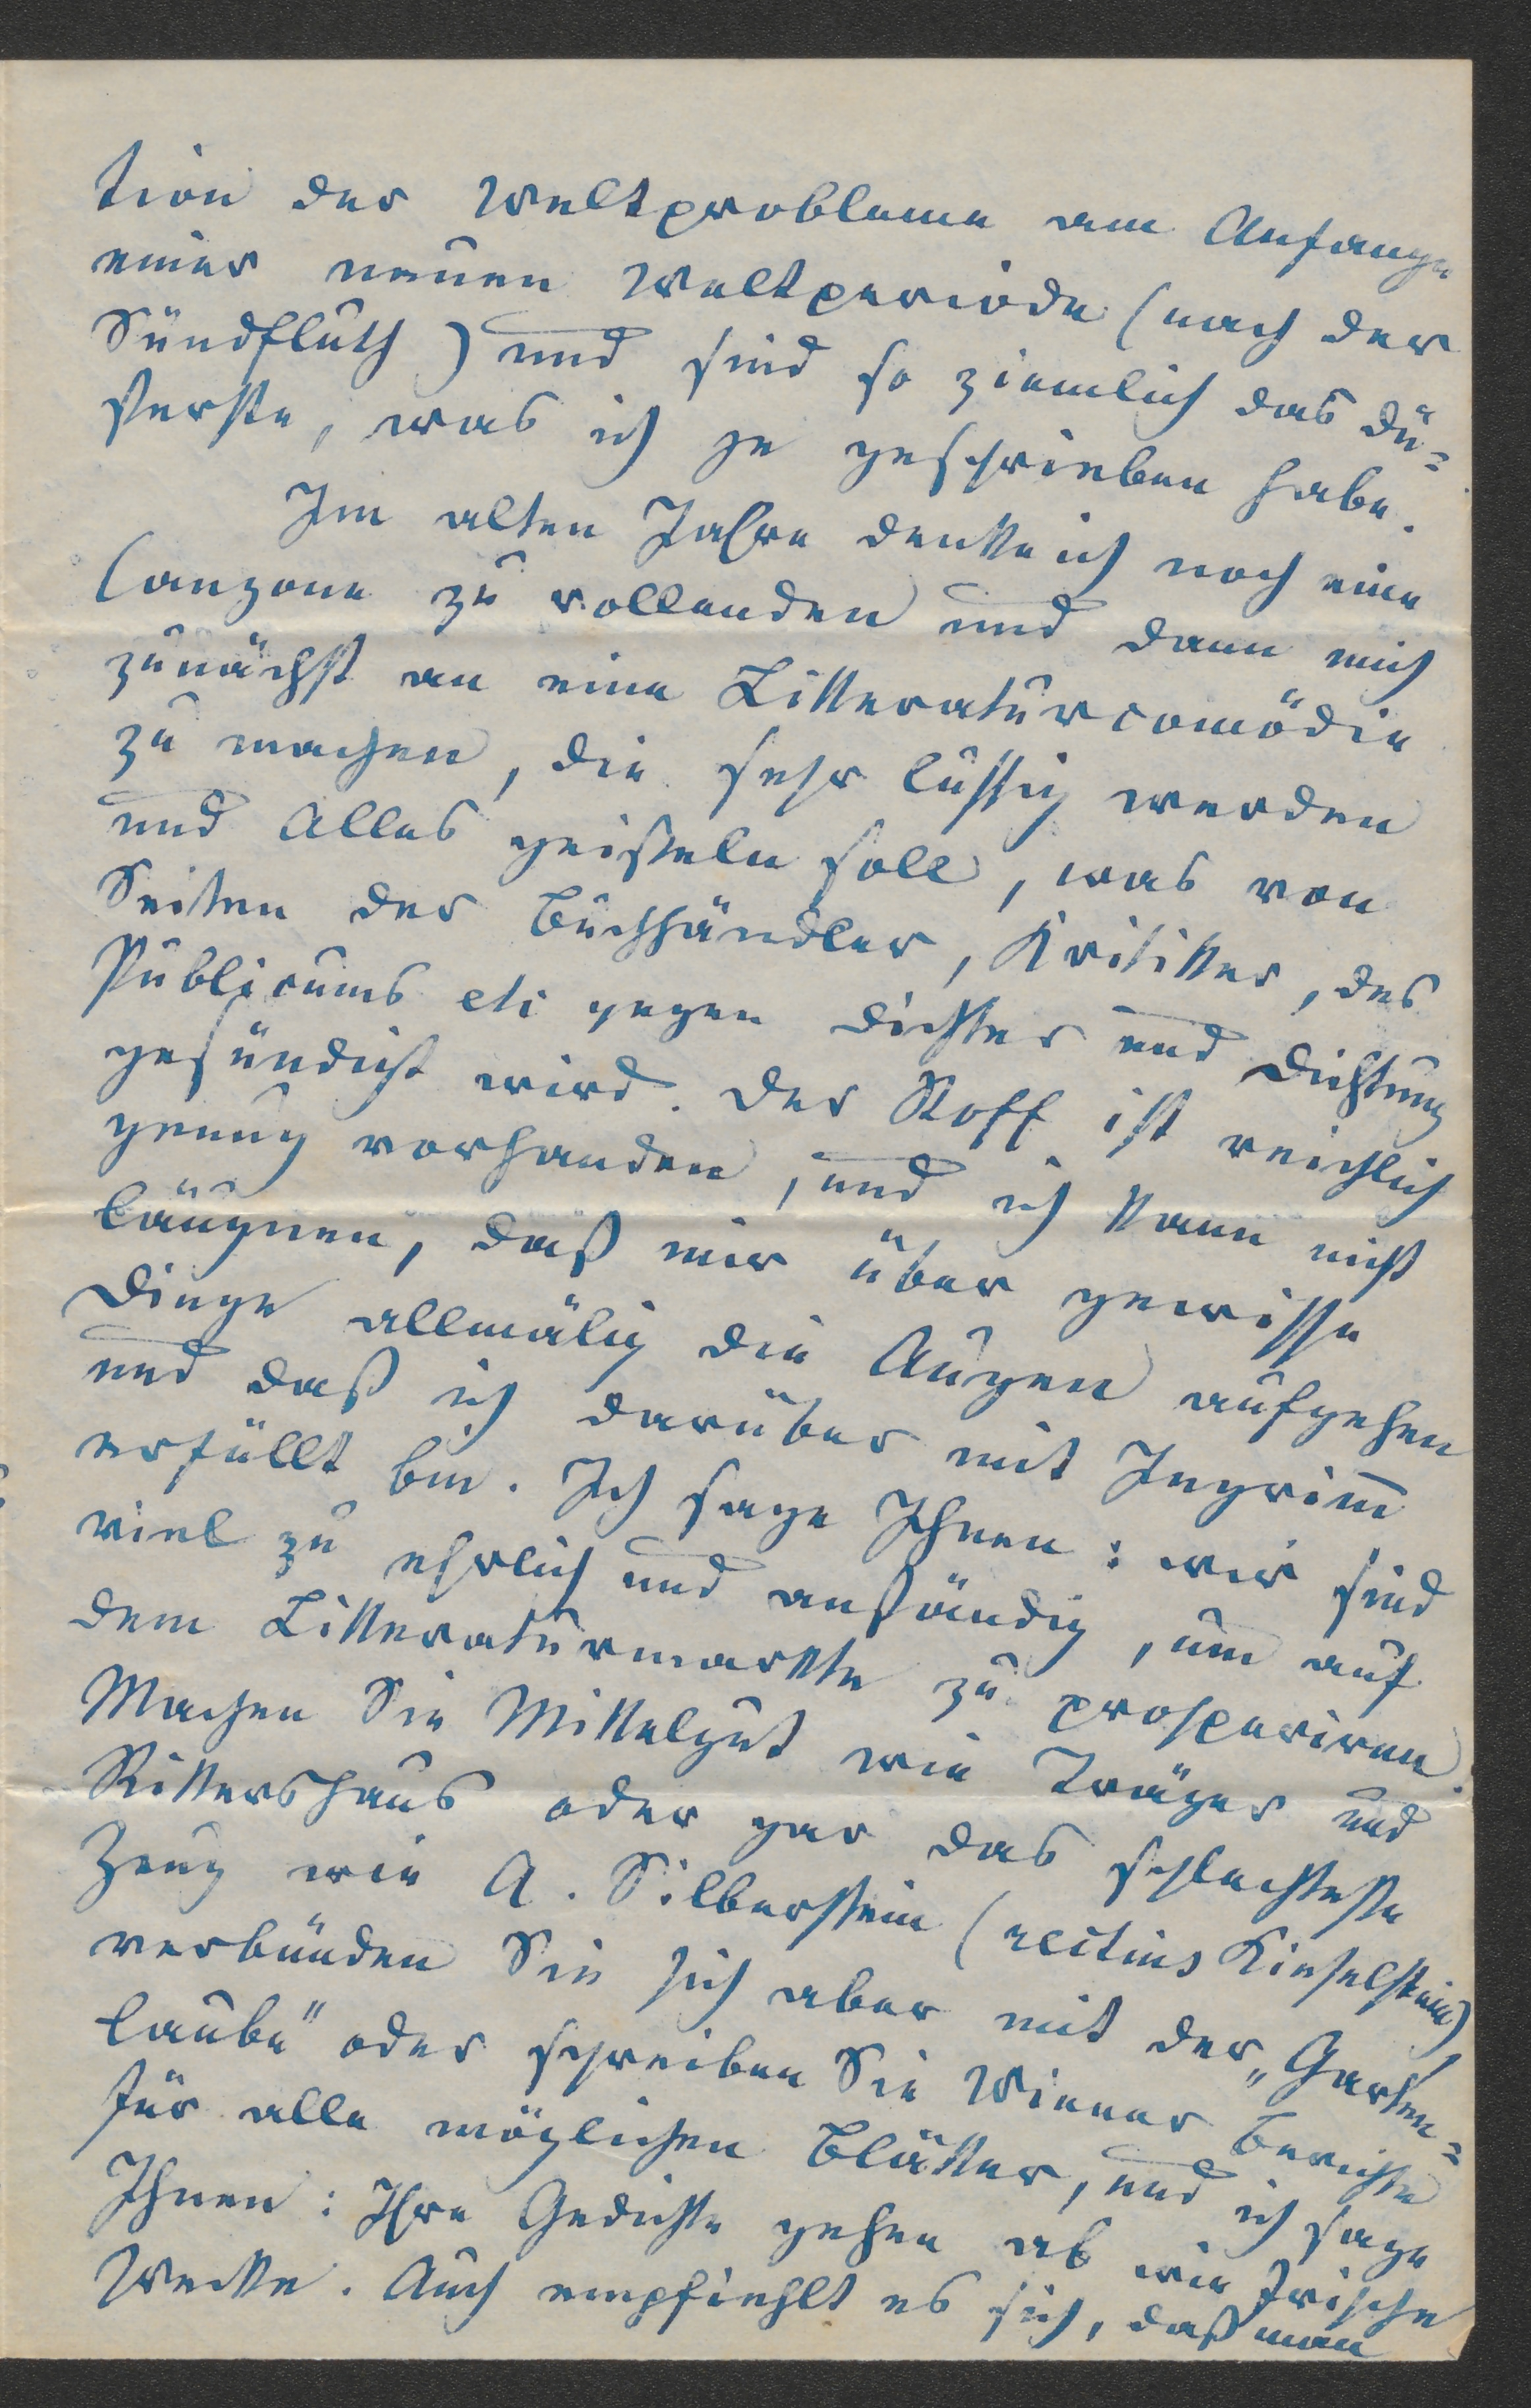 tion der Weltprobleme am Anfange
einer neuen Weltperiode (nach der
Sündfluth) und sind so ziemlich das dü=
sterste, was ich je geschrieben habe.
Im alten Jahre denke ich noch eine
Canzone zu vollenden und dann mich
zunächst an eine Litteraturcomödie
zu machen, die sehr lustig werden
und Alles geißeln soll, was von
Seiten der Buchhändler, Kritiker, des
Publicums etc gegen Dichter und Dichtung
gesündigt wird. Der Stoff ist reichlich
genug vorhanden, und ich kann nicht
läugnen, daß mir über gewisse
Dinge allmälig die Augen aufgehen
und daß ich darüber mit Ingrim̄
erfüllt bin. Ich sage Ihnen: wir sind
viel zu ehrlich und anständig, um auf
dem Litteraturmarkte zu prosperiren.
Machen Sie Mittelgut wie Träger und
Rittershaus oder gar das schlechteste
Zeug wie A. Silberstein (rectius Kieselstein)
verbünden Sie sich aber mit der „Garten=
laube" oder schreiben Sie Wiener Berichte
für alle möglichen Blätter, und ich sage
Ihnen: Ihre Gedichte gehen ab wie frische
Wecke. Auch empfiehlt es sich, daß man